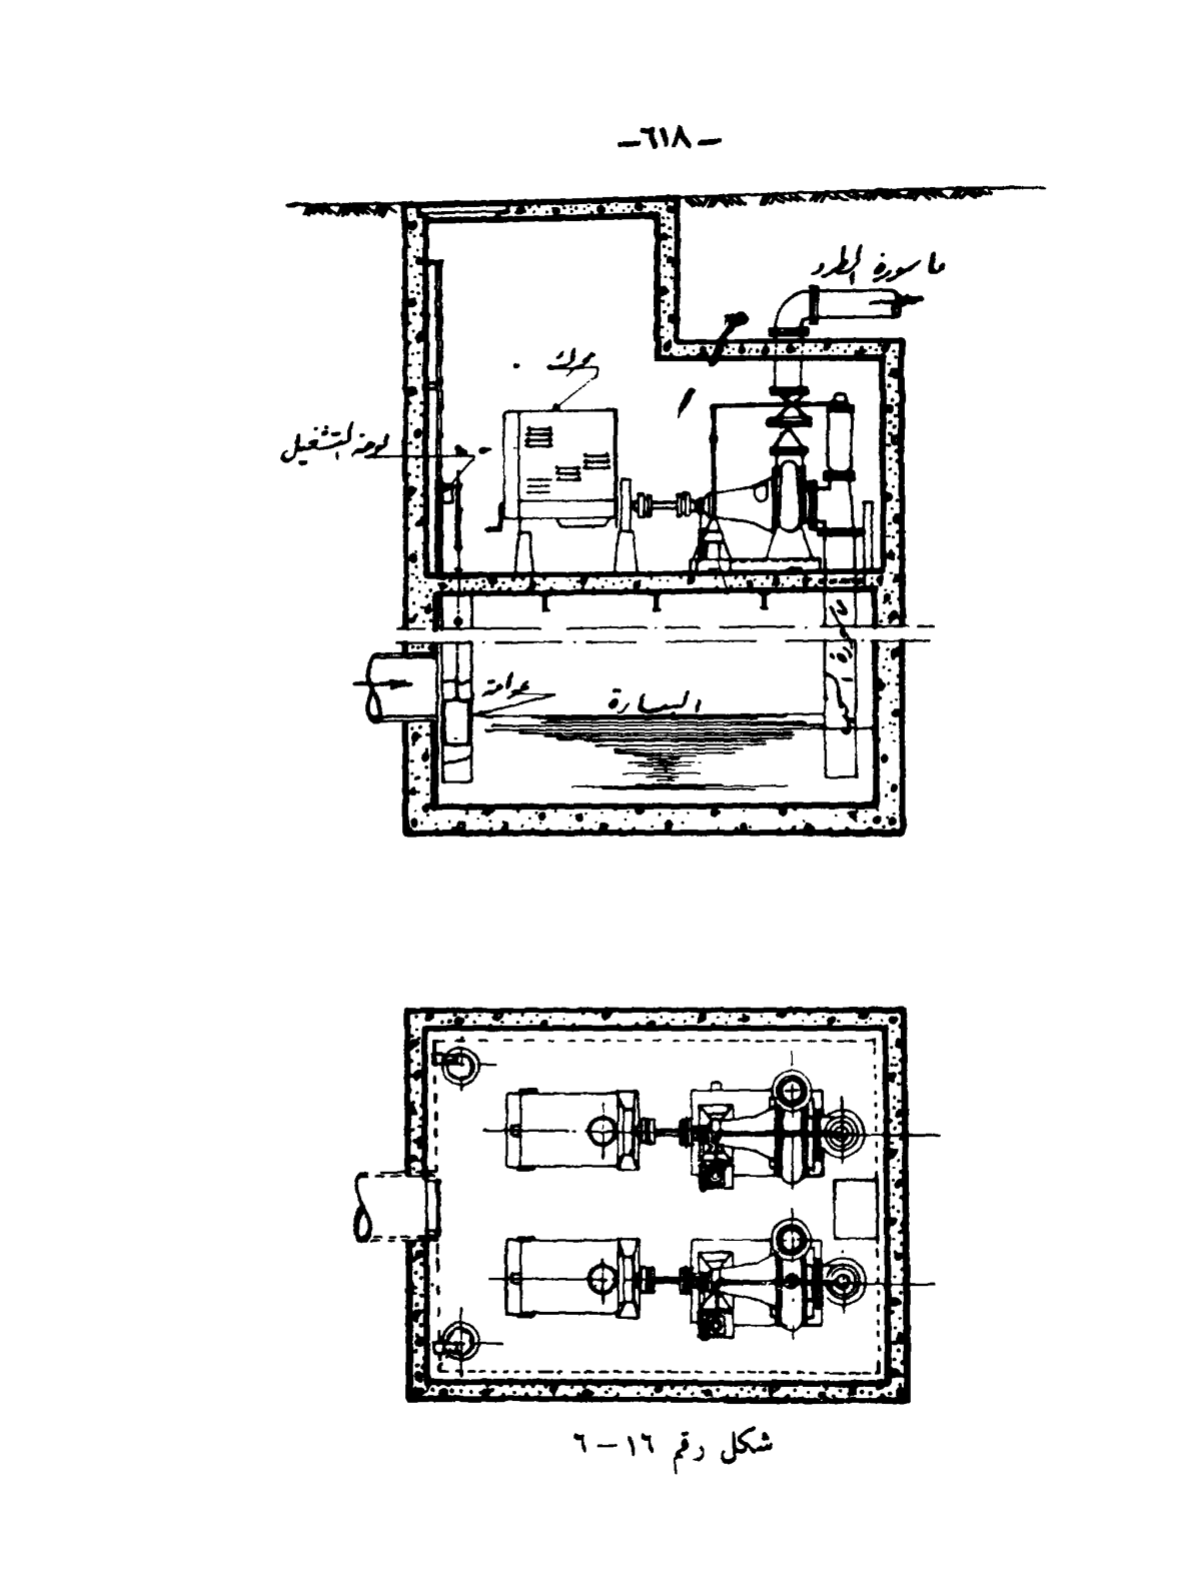 ـ٦١٨ـ
ماسورة الطرد
محرك
لوحة التشغيل
عوامة
البيارة
شكل رقم ١٦ – ٦